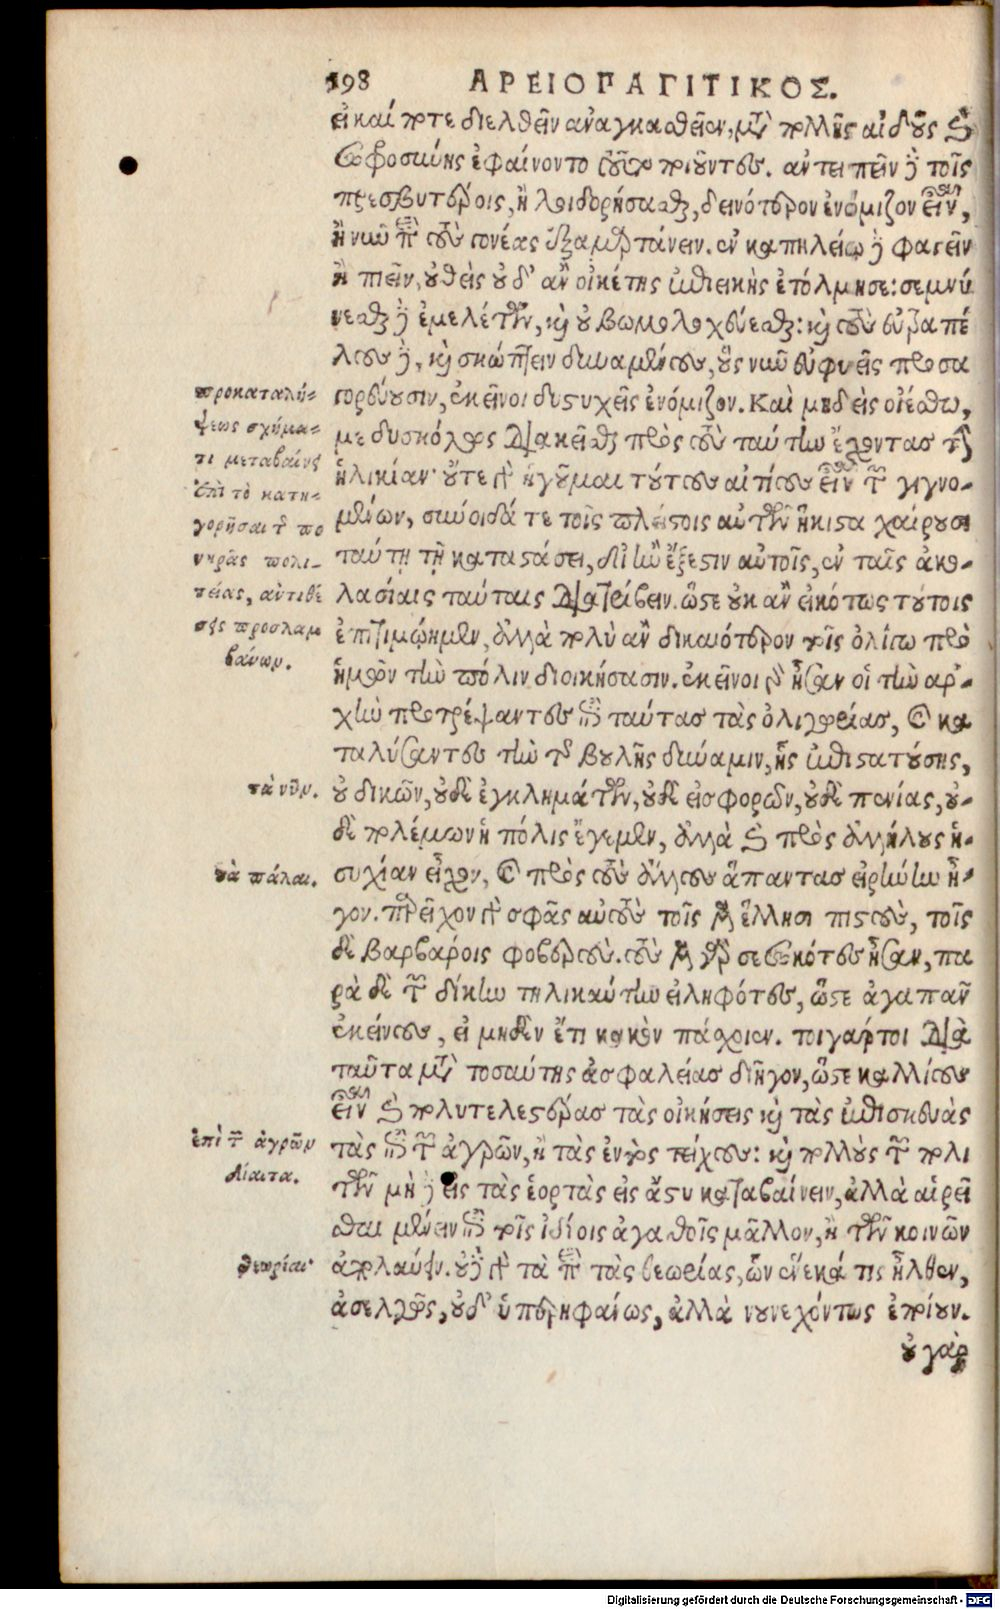 198 ΑΡΕΙΟΠΑΓΙΤΙΚΟΣ.
εἰ καί ποτε διελθεῖν ἀναγκασθεῖεν, μετὰ πολλῆς αἰδοῦς καὶ
σωφροσύνης ἐφαίνοντο τοῦτο ποιοῦντες. ἀντειπεῖν δὲ τοῖς
πρεσβυτέροις, ἢ λοιδορήσασθαι, δεινότερον ἐνόμιζον εἶναι,
ἢ νῦν περὶ τοὺς γονέας ἐξαμαρτάνειν. ἐν καπηλείῳ δὲ φαγεῖν
ἢ πιεῖν, οὐθεὶς οὐδ' ἂν οἰκέτης ἐπιεικὴς ἐτόλμησε: σεμνύ
νεσθαι δὲ ἐμελέτων, καὶ οὐ βωμολοχεύεσθαι: καὶ τοὺς εὐτραπέ
λους δὲ, καὶ σκώπτειν δυναμένους, οὓς νῦν εὐφυεῖς προσα
γορεύουσιν, ἐκεῖνοι δυστυχεῖς ἐνόμιζον. Καὶ μηδεὶς οἰέσθω,
με δυσκόλως διακεῖσθαι πρὸς τοὺς ταύτην ἔχοντας τὴν
ἡλικίαν· οὔτε γὰρ ἡγοῦμαι τούτους αἰτίους εἶναι τῶν γιγνο-
μένων, σύνοιδά τε τοῖς πλείστοις αὐτῶν ἥκιστα χαίρουσι
ταύτῃ τῇ καταστάσει, δι' ἣν ἔξεστιν αὐτοῖς, ἐν ταῖς ἀκο-
λασίαις ταύταις διατρίβειν. ὥστε οὐκ ἂν εἰκότως τούτοις
ἐπιτιμῴημεν, ἀλλὰ πολὺ ἂν δικαιότερον τοῖς ὀλίγῳ πρὸ
ἡμῶν τὴν πόλιν διοικήσασιν. ἐκεῖνοι γὰρ ἦσαν οἱ τὴν ἀρ-
χὴν προτρέψαντες ἐπὶ ταύτας τὰς ὀλιγωρίας, καὶ κα
ταλύσαντες τὴν τῆς βουλῆς δύναμιν, ἧς ἐπιστατούσης,
οὐ δικῶν, οὐδὲ ἐγκλημάτων, οὐδὲ εἰσφορῶν, οὐδὲ πενίας, οὐ-
δὲ πολέμων ἡ πόλις ἔγεμεν, ἀλλὰ καὶ πρὸς ἀλλήλους ἡ-
συχίαν εἶχον, καὶ πρὸς τοὺς ἄλλους ἅπαντας εἰρήνην ἦ-
γον. παρεῖχον γὰρ σφᾶς αὐτοὺς τοῖς μὲν ἕλλησι πιστοὺς, τοῖς
δὲ βαρβάροις φοβερούς. τοὺς μὲν γὰρ σεσωκότες ἦσαν, πα
ρὰ δὲ τῶν δίκην τηλικαύτην εἰληφότες, ὥστε ἀγαπᾶν
ἐκείνους, εἰ μηδὲν ἔτι κακὸν πάσχοιεν. τοιγάρτοι διὰ
ταῦτα μετὰ τοσαύτης ἀσφαλείας διῆγον, ὥστε καλλίους
εἶναι καὶ πολυτελεστέρας τὰς οἰκήσεις καὶ τὰς ἐπισκευὰς
τὰς ἐπὶ τῶν ἀγρῶν, ἢ τὰς ἐντὸς τείχους: καὶ πολλοὺς τῶν πολι
τῶν μὴ δὲ εἰς τὰς ἑορτὰς εἰς ἄστυ καταβαίνειν, ἀλλὰ αἱρεῖ
σθαι μένειν ἐπὶ τοῖς ἰδίοις ἀγαθοῖς μᾶλλον, ἢ τῶν κοινῶν
ἀπολαύειν. οὐδὲ γὰρ τὰ περὶ τὰς θεωρίας, ὧν ἕνεκά τις ἦλθεν,
ἀσελγῶς, οὐδ' ὑπερηφάνως, ἀλλὰ νουνεχόντως ἐποίουν.
οὐ γὰρ
προκαταλή-
ψεως σχήμα-
τι μεταβαίνει
ἐπὶ τὸ κατη-
γορῆσαι τῆς πο
νηρᾶς πολι-
τείας, ἀντιθέ
σεις προσλαμ
βάνων.
τὰ νῦν.
τὰ πάλαι.
ἐπὶ τῶν ἀγρῶν
δίαιτα.
θεωρίαι
Digitalisierung gefördert durch die Deutsche Forschungsgemeinschaft - DFG